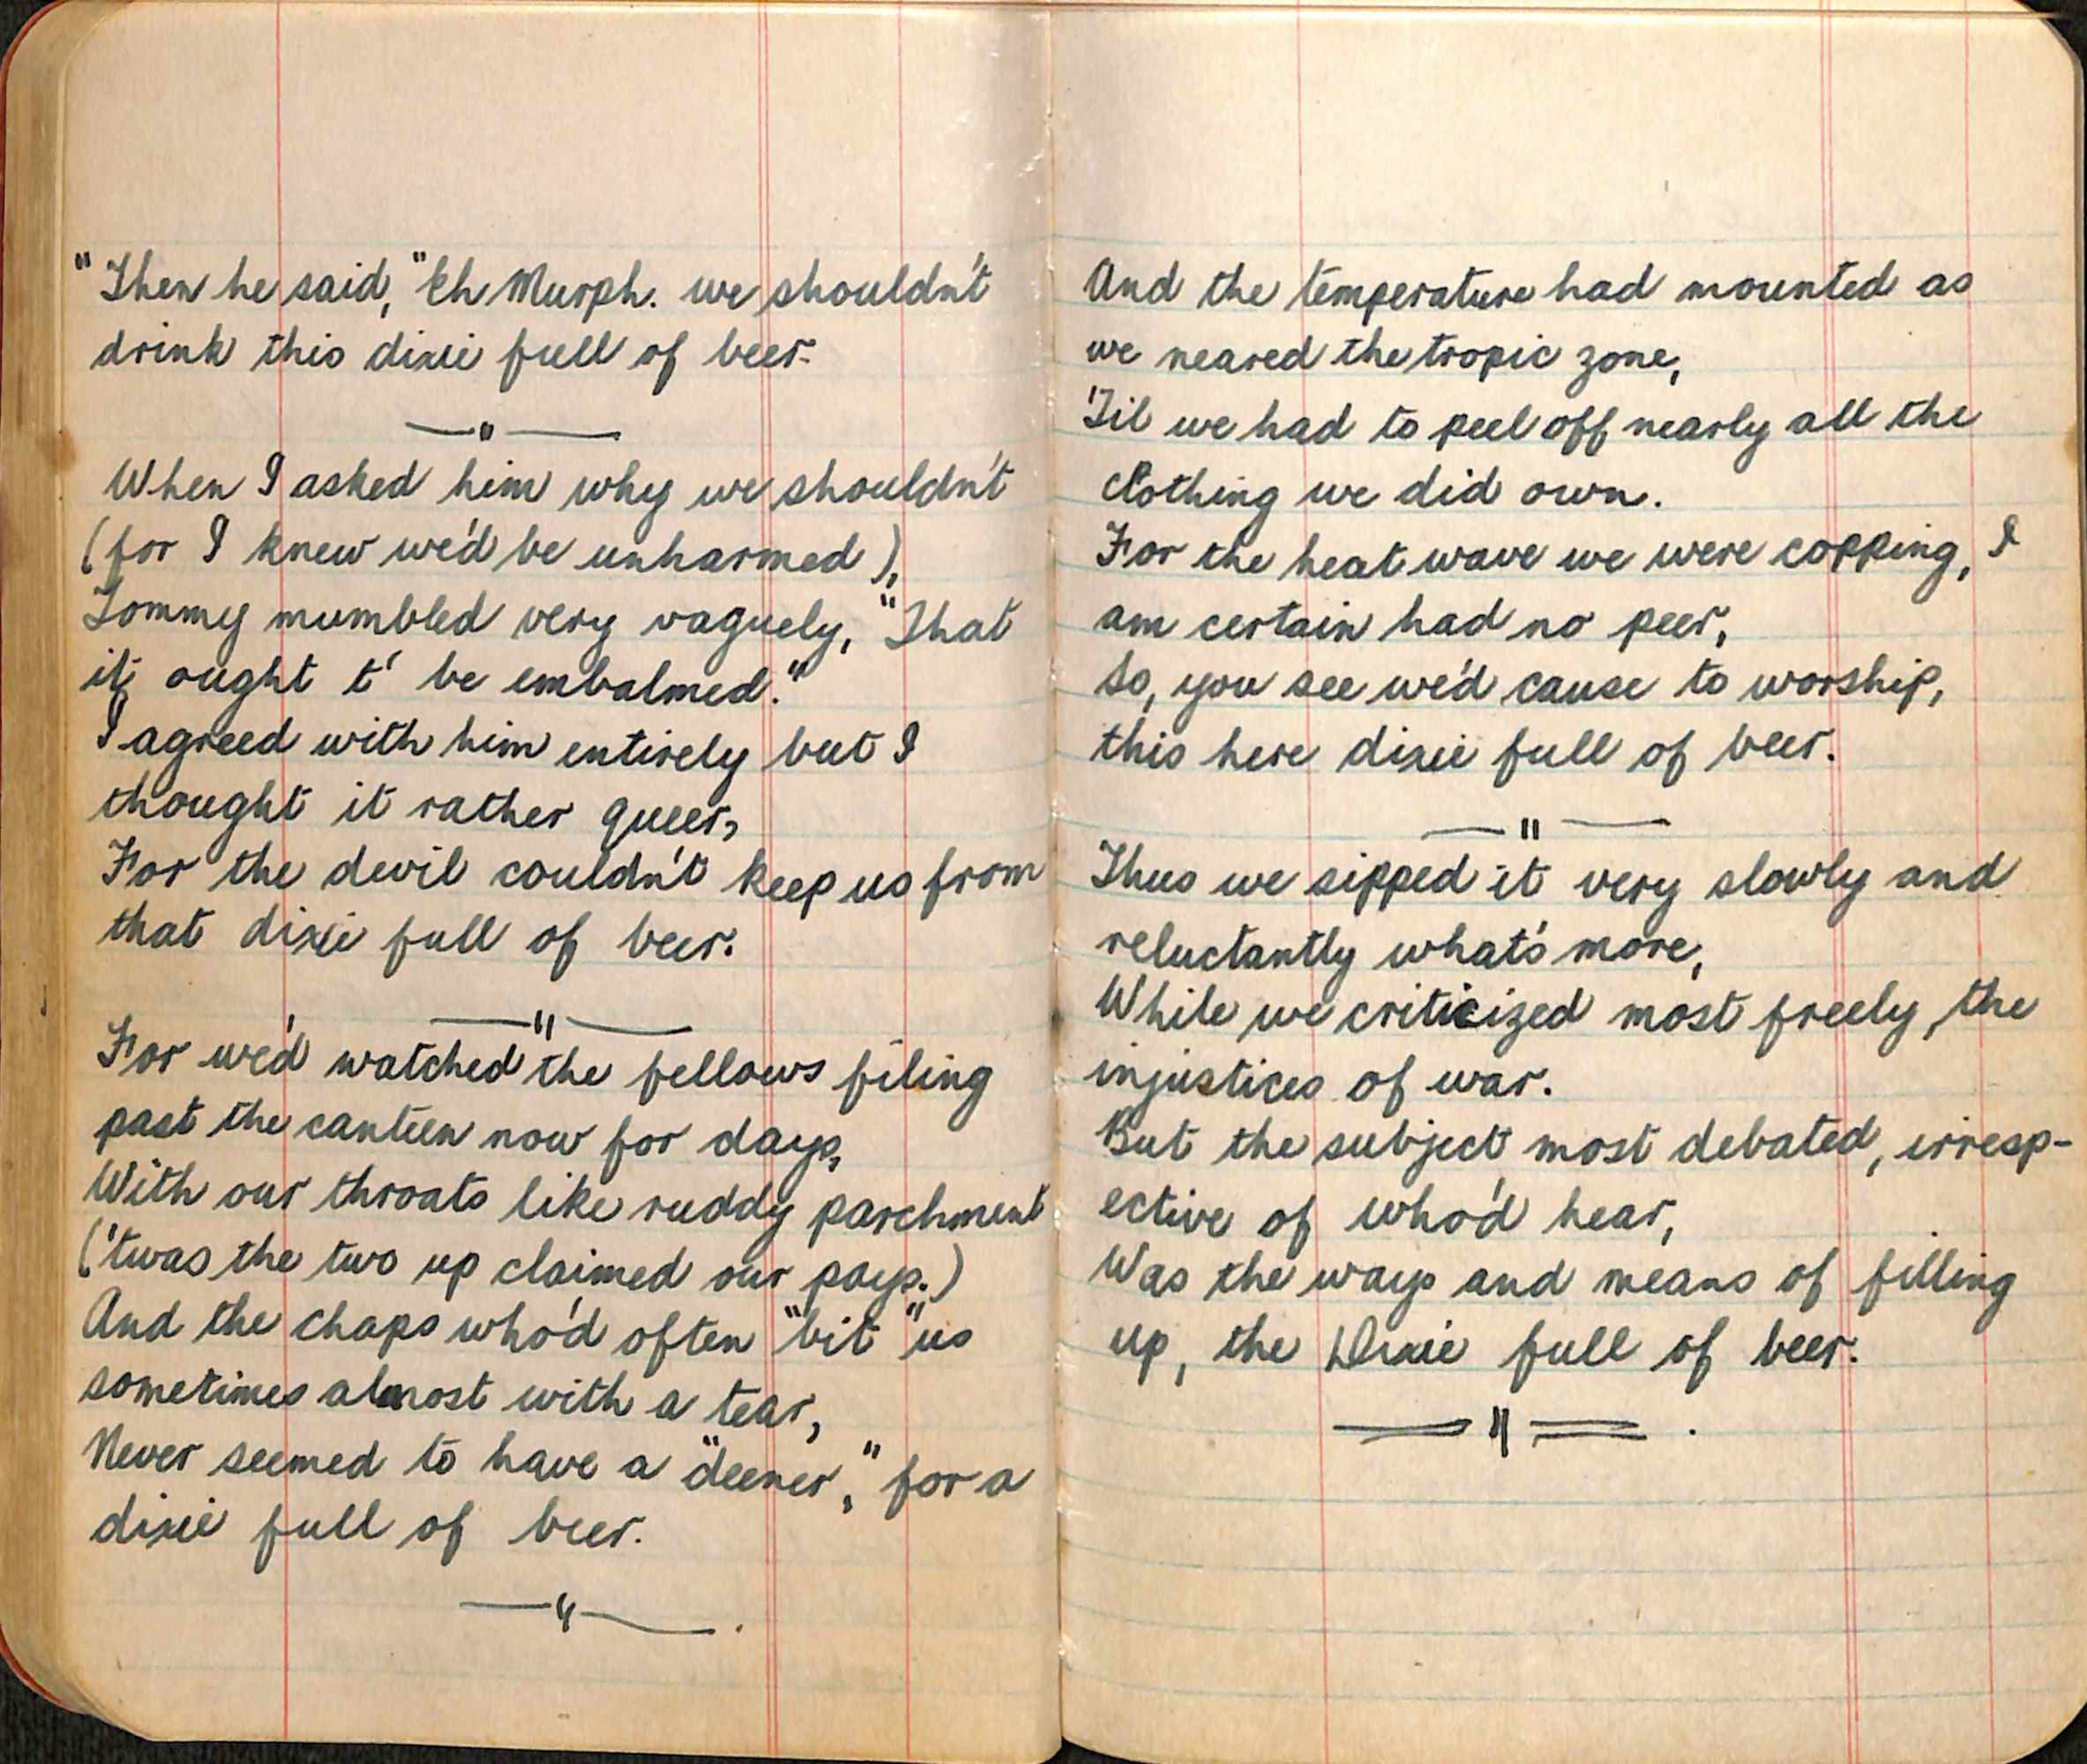 "Then he said, "Eh Murph. we shouldn't
drink this dixie full of beer.
When I asked him why we shouldn't
(for I knew we'd be unharmed),
Tommy mumbled very vaguely, "That
it ought t' be embalmed."
I agreed with him entirely but I
thought it rather queer,
For the devil couldn't keep us from
that dixie full of beer.
For we'd watched the fellows filing
past the canteen now for days,
With our throats like ruddy parchment
('twas the two up claimed our pays.)
And the chaps who'd often "bit" us
sometimes almost with a tear,
Never seemed to have a "deener," for a
dixie full of beer.
And the temperature had mounted as
we neared the tropic zone,
'Til we had to peel off nearly all the
clothing we did own.
For the heat wave we were copping, I
am certain had no peer,
So, you see we'd cause to worship,
this here dixie full of beer.
Thus we sipped it very slowly and
reluctantly what's more,
While we criticized most freely, the
injustices of war.
But the subject most debated, irresp-
ective of who'd hear,
Was the ways and means of filling
up, the Dixie full of beer.